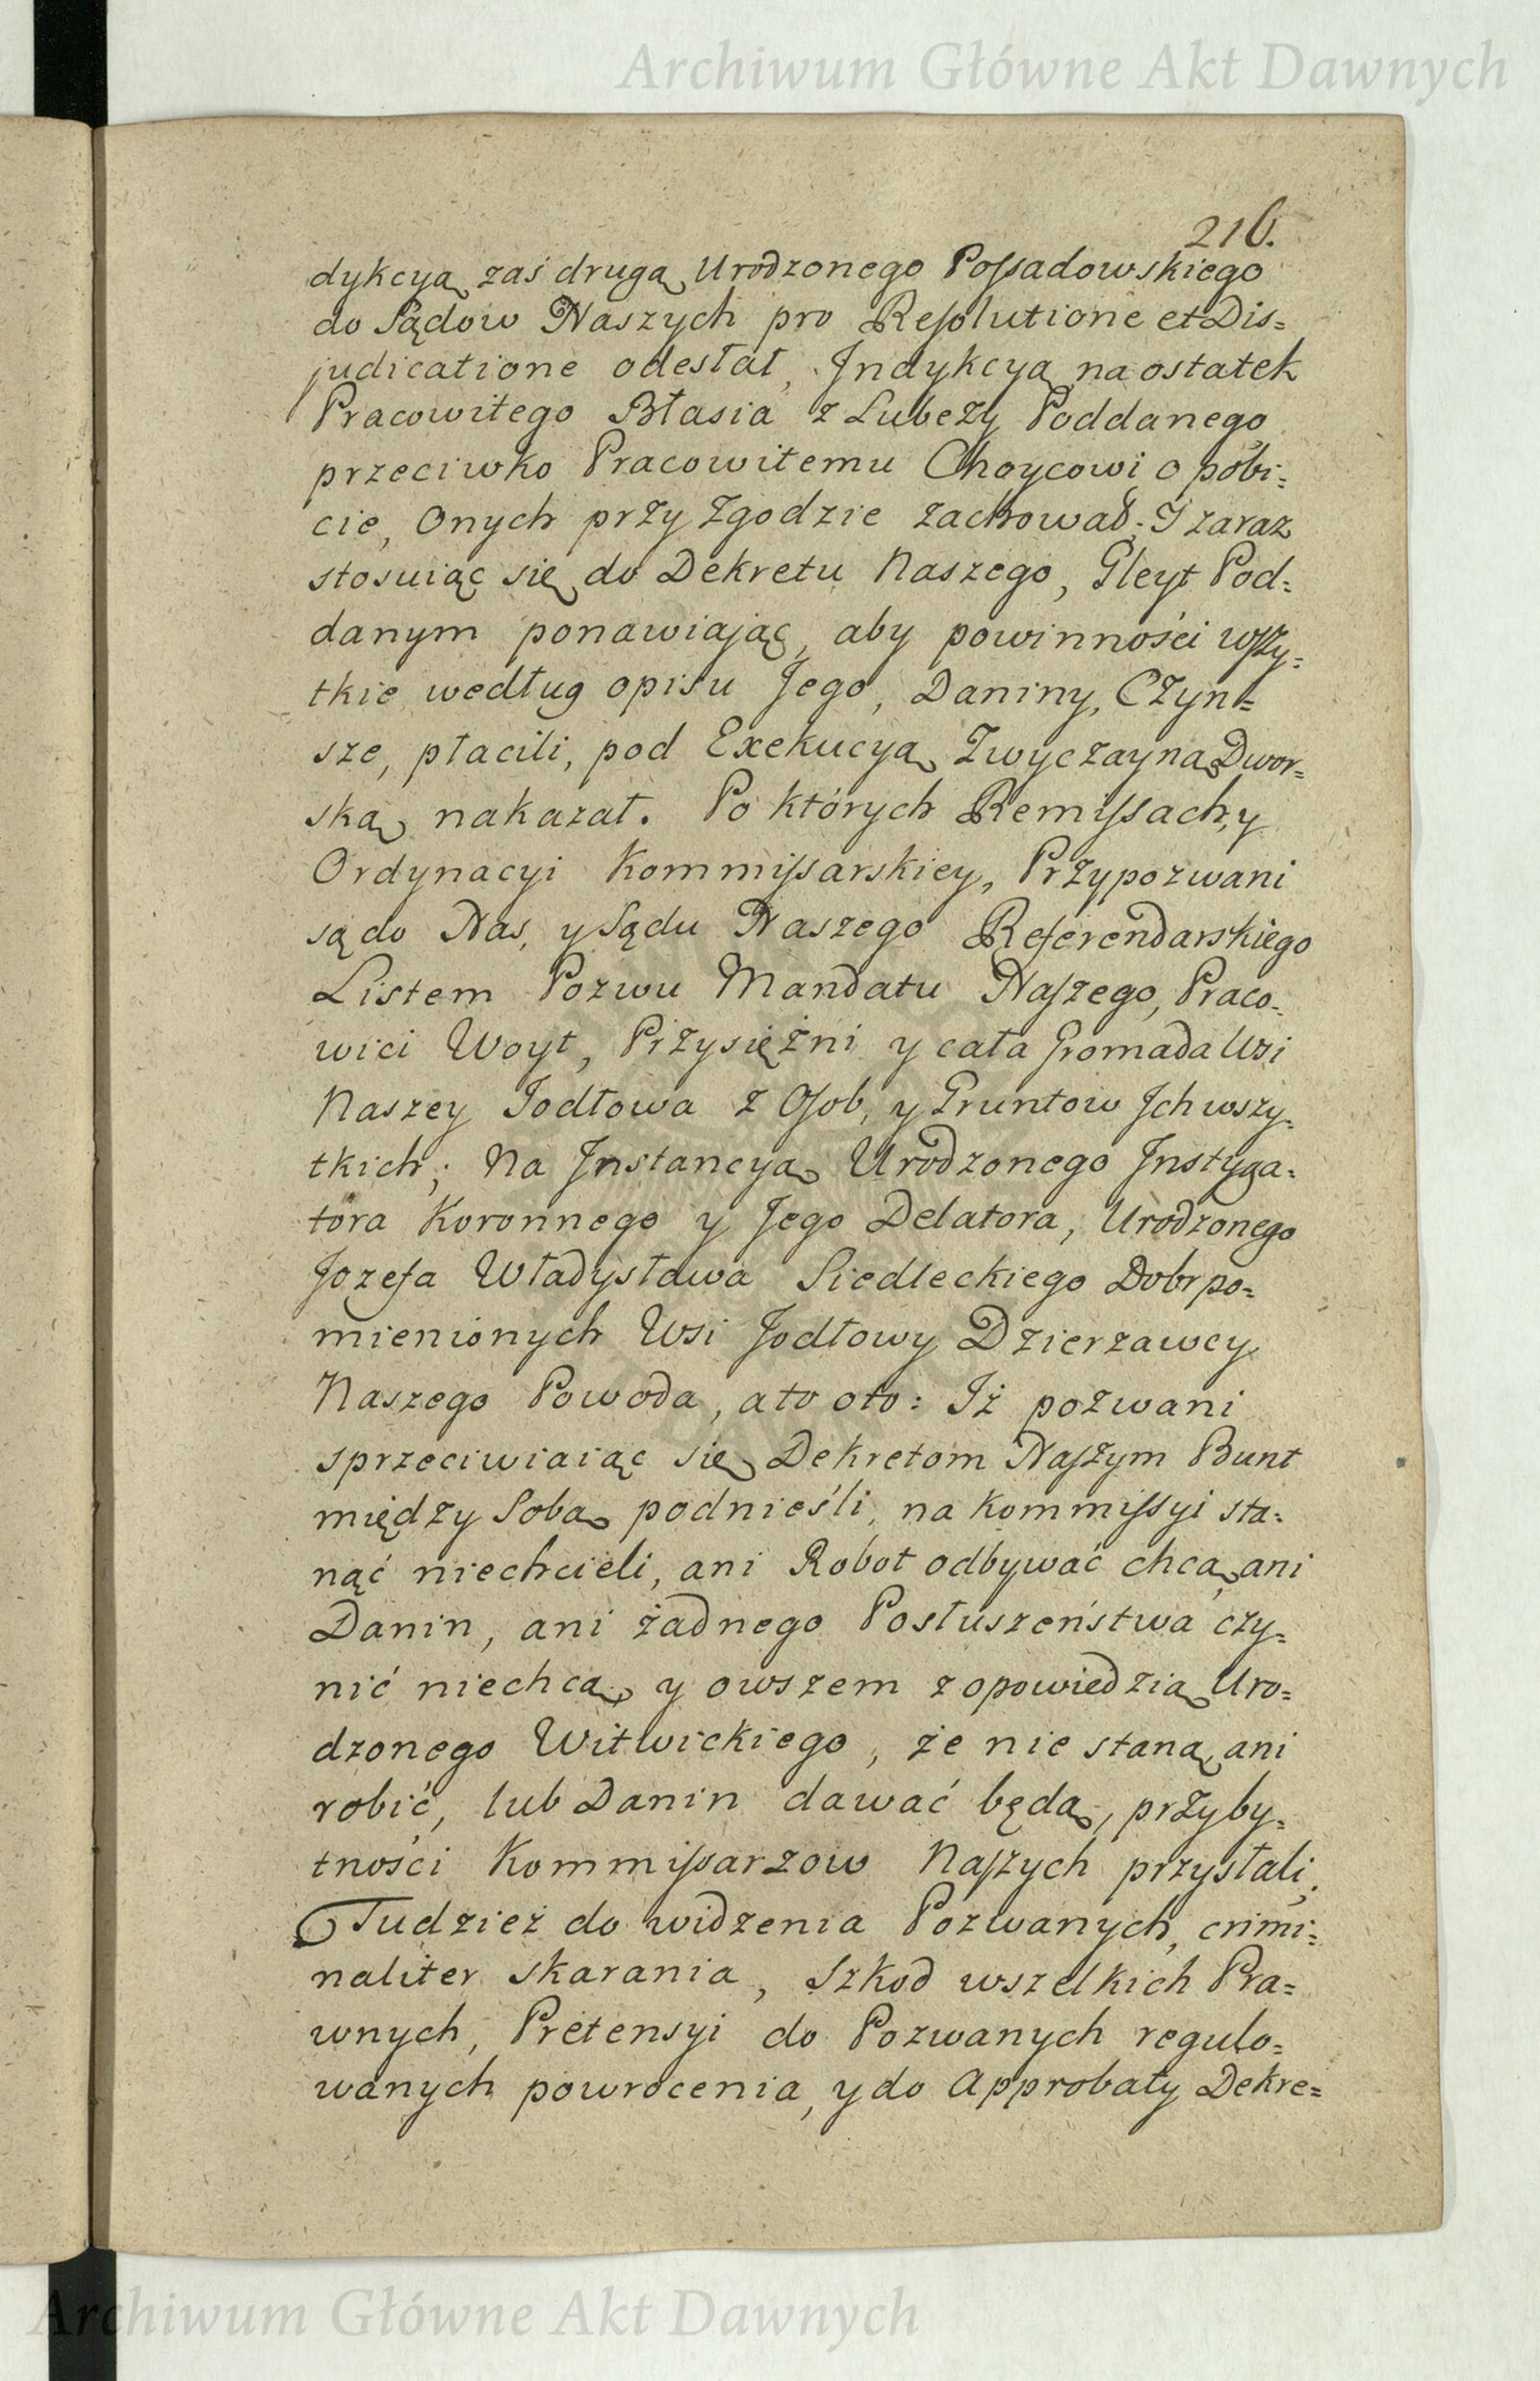 Archiwum Główne Akt Dawnych
216.
dykcyą zaś drugą Urodzonego Poſsadowskiego
do Sądow Naszych pro Reſolutione et Dis=
judicatione odesłał, Indykcyą na ostatek
Pracowitego Błasia z Lubeży Poddanego
przeciwko Pracowitemu Choycowi o pobi=
cie, Onych przy Zgodzie zachował; I zaraz
stosuiąc się do Dekretu Naszego, Gleyt Pod=
danym ponawiając, aby powinności wſzy=
tkie według opisu Jego, Daniny, Czyn=
sze, płacili, pod Exekucyą Zwyczayną Dwor=
ską nakazał. Po których Remiſsach, y
Ordynacyi Kommiſsarskiey, Przypozwani
są do Nas, y Sądu Naszego Referendarskiego
Listem Pozwu Mandatu Naſzego, Praco=
wici Woyt, Przysiężni y cała Gromada Wsi
Naszey Jodłowa z Oſob, y Gruntow Jch wszy=
tkich; Na Jnstancyą Urodzonego Jnstyga=
tora Koronnego y Jego Delatora, Urodzonego
Jozefa Władysława Siedleckiego Dobr po=
mienionych Wsi Jodłowy Dzierzawcy
Naszego Powoda, a to oto: Iż pozwani
sprzeciwiaiąc się Dekretom Naſzym Bunt
między Sobą podnieśli, na Kommiſsyi sta=
nąć niechcieli, ani Robot odbywać chcą, ani
Danin, ani żadnego Posłuszeństwa czy=
nić niechcą, y owszem z opowiedzią Uro=
dzonego Witwickiego, że nie staną, ani
robić, lub Danin dawać będą, przyby=
tności Kommiſsarzow Naſzych przystali;
Tudzież do widzenia Pozwanych, crimi=
naliter skarania, Szkod wszelkich Pra=
wnych, Pretensyi do Pozwanych regulo=
wanych powrocenia, y do Approbaty Dekre=
Archiwum Główne Akt Dawnych